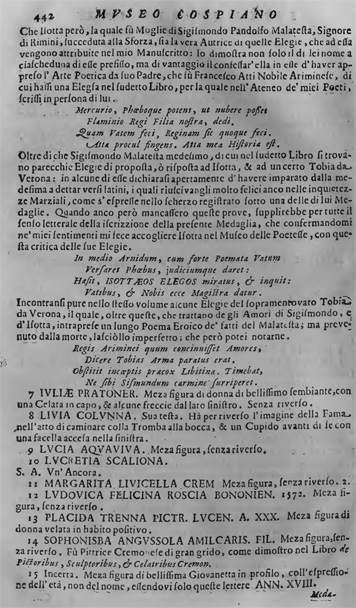 442 MVSEO COSPIANO
Che Isotta però, la quale fù Moglie di Sigismondo Pandolfo Malatesta, Signore
di Rimini, succeduta alla Sforza, sia la vera Autrice di quelle Elegie, che ad essa
vengono attribuite nel mio Manuscritto: lo dimostra non solo il di lei nome a
ciascheduna di esse prefisso, ma di vantaggio il confessar' ella in esse d' haver ap-
preso l' Arte Poetica da suo Padre, che fù Francesco Atti Nobile Ariminese, di
cui hassi una Elegia nel sudetto Libro, per la quale nell' Ateneo de' miei Poeti,
scrissi in persona di lui.
Mercurio, Phœboque potens, ut nubere posset
Flaminio Regi Filia nostra, dedi.
Quam Vatem feci, Reginam sic quoque feci.
Atta procul fingens. Atta mea Historia est.
Oltre di che Sigismondo Malatesta medesimo, di cui nel sudetto Libro si trova-
no parecchie Elegie di proposta, ò risposta ad Isotta, & ad un certo Tobia da
Verona: in alcune di esse dichiarasi apertamente d' havere imparato dalla me-
desima a dettar versi latini, i quali riuscivangli molto felici anco nelle inquietez-
ze Marziali, come s' espresse nello scherzo registrato sotto una delle di lui Me-
daglie. Quando anco però mancassero queste prove, supplirebbe per tutte il
senso letterale della iscrizzione della presente Medaglia, che confermandomi
ne' miei sentimenti mi fece accogliere Isotta nel Museo delle Poetesse, con que-
sta critica delle sue Elegie.
In medio Arvidum, cum forte Poemata Vatum
Versaret Phœbus, judiciumque daret:
Hæsit, ISOTTÆOS ELEGOS miratus, & inquit:
Vatibus, & Nobis ecce Magistra datur.
Incontransi pure nello stesso volume alcune Elegie del sopramentovato Tobia
da Verona, il quale, oltre queste, che trattano degli Amori di Sigismondo, e
d' Isotta, intraprese un lungo Poema Eroico de' fatti del Malatesta; ma preve-
nuto dalla morte, lasciòllo imperfetto; che però potei notarne.
Regis Ariminei quum concinuisset Amores,
Dicere Tobias Arma paratus erat.
Obstitit inceptis præcox Libitina. Timebat,
Ne sibi Sismundum carmine surriperet.
7 IVLIÆ PRATONER. Meza figura di donna di bellissimo sembiante, con
una Celata in capo, & alcune freccie dal lato sinistro. Senza riverso.
8 LIVIA COLVNNA. Sua testa. Hà per riverso l' imagine della Fama
nell' atto di caminare colla Tromba alla bocca, & un Cupido avanti di se con
una facella accesa nella sinistra.
9 LVCIA AQVAVIVA. Meza figura, senza riverso.
10 LVCRETIA SCALIONA.
S. A. Vn' Ancora.
11 MARGARITA LIVICELLA CREM Meza figura, senza riverso. 2.
12 LVDOVICA FELICINA ROSCIA BONONIEN. 1572. Meza fi-
gura, senza riverso.
13 PLACIDA TRENNA PICTR. LVCEN. A. XXX. Meza figura di
donna velata in habito positivo.
14 SOPHONISBA ANGVSSOLA AMILCARIS. FIL. Meza figura, sen-
za riverso. Fù Pittrice Cremonese di gran grido, come dimostro nel Libro de
Pictoribus, Sculptoribus, & Celatribus Cremon.
15 Incerta. Meza figura di bellissima Giovanetta in profilo, coll' espressio-
ne dell' età, non del nome, essendovi solo queste lettere ANN. XVIII.
Meda-